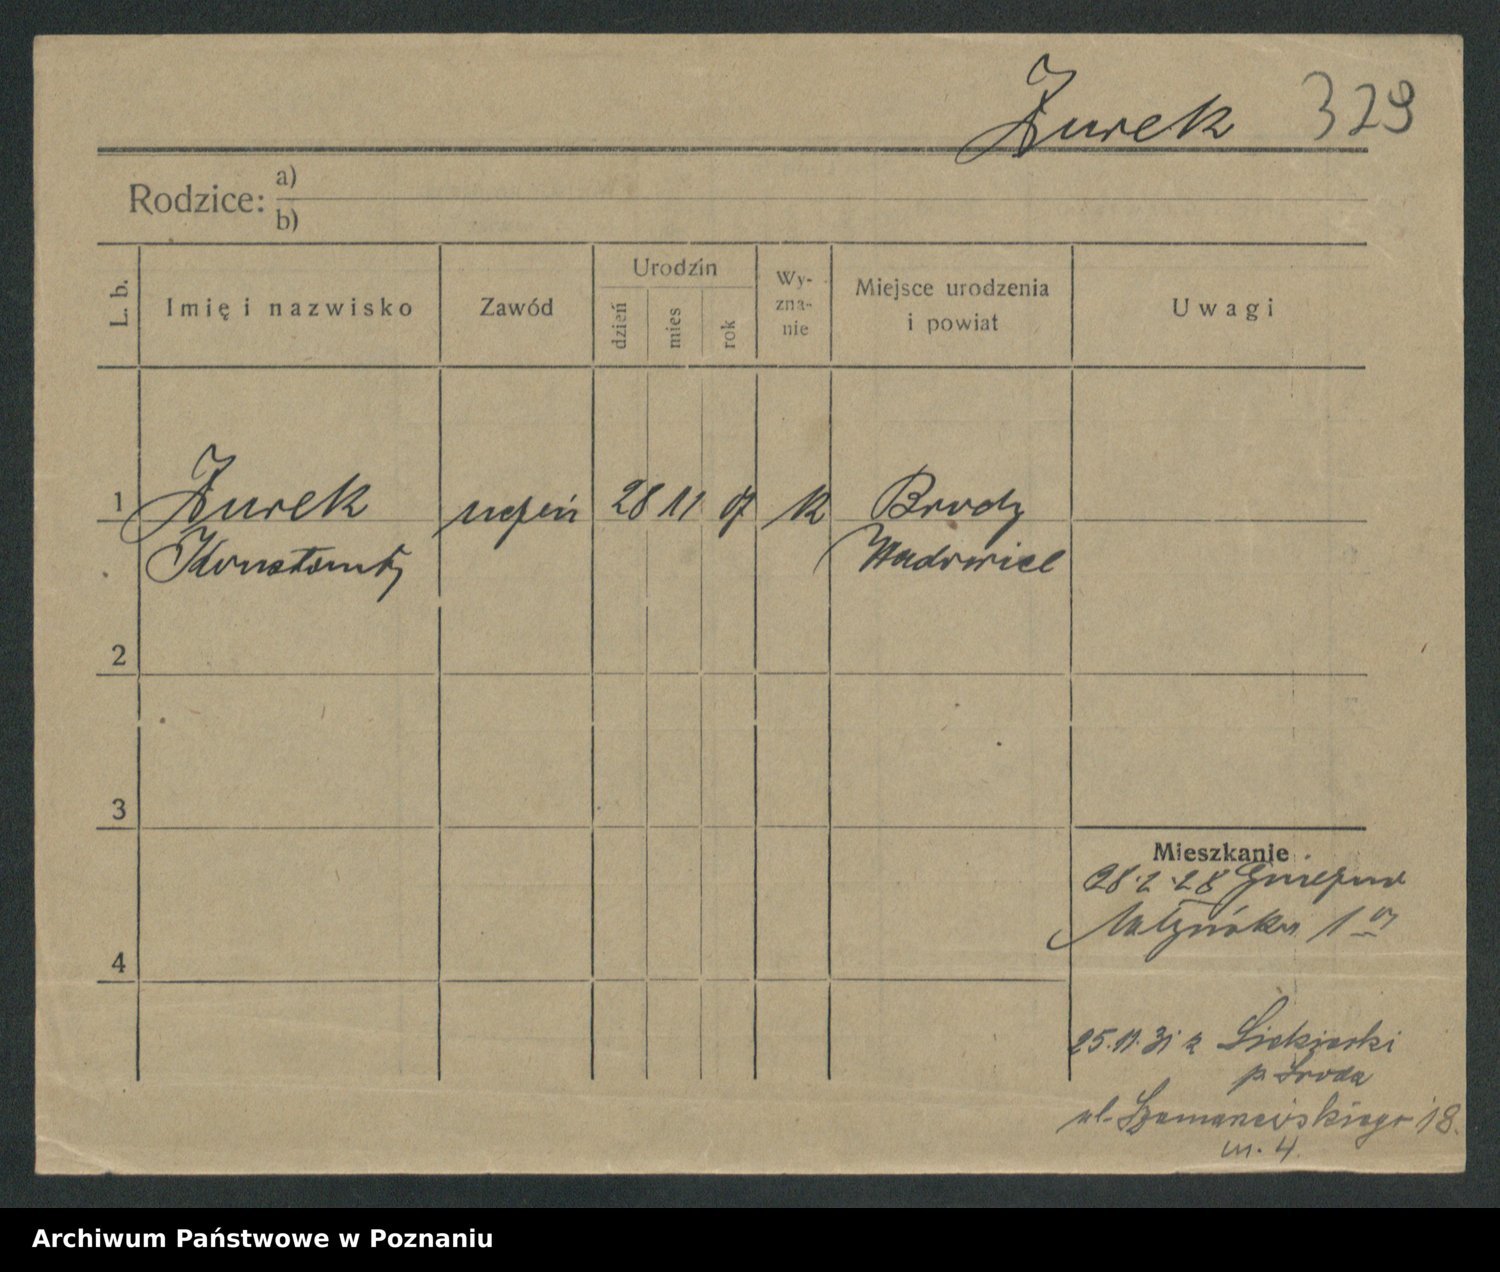 Żurek 329
Rodzice: a)
b)
L. b.
Imię i nazwisko
Zawód
Urodzin
dzień
mies
rok
Wy-
zna-
nie
Miejsce urodzenia
i powiat
Uwagi
1 Żurek uczeń 28 11 07 k Brody
Konstanty Wadowice
2
3
4
Mieszkanie
28.2.28 Gniezno
1
25.11.31 z Siekierki
p. Środa
ul. Szamarzewskiego 18.
m. 4.
Archiwum Państwowe w Poznaniu